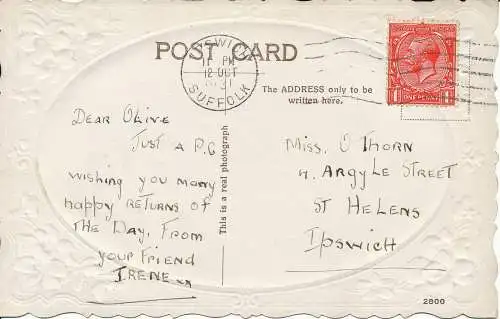 POST CARD
IPSWICH
PM
12 OCT
SUFFOLK
POSTAGE REVENUE
1 ONE PENNY 1
The ADDRESS only to be
written here.
This is a real photograph
DEAR OLIVE
JUST A P.C
wishing you many
happy RETURNS of
THE DAY. FROM
your FRIEND
IRENE xx
MISS. O THORN
4. ARGYLE STREET
ST HELENS
Ipswich.
2800